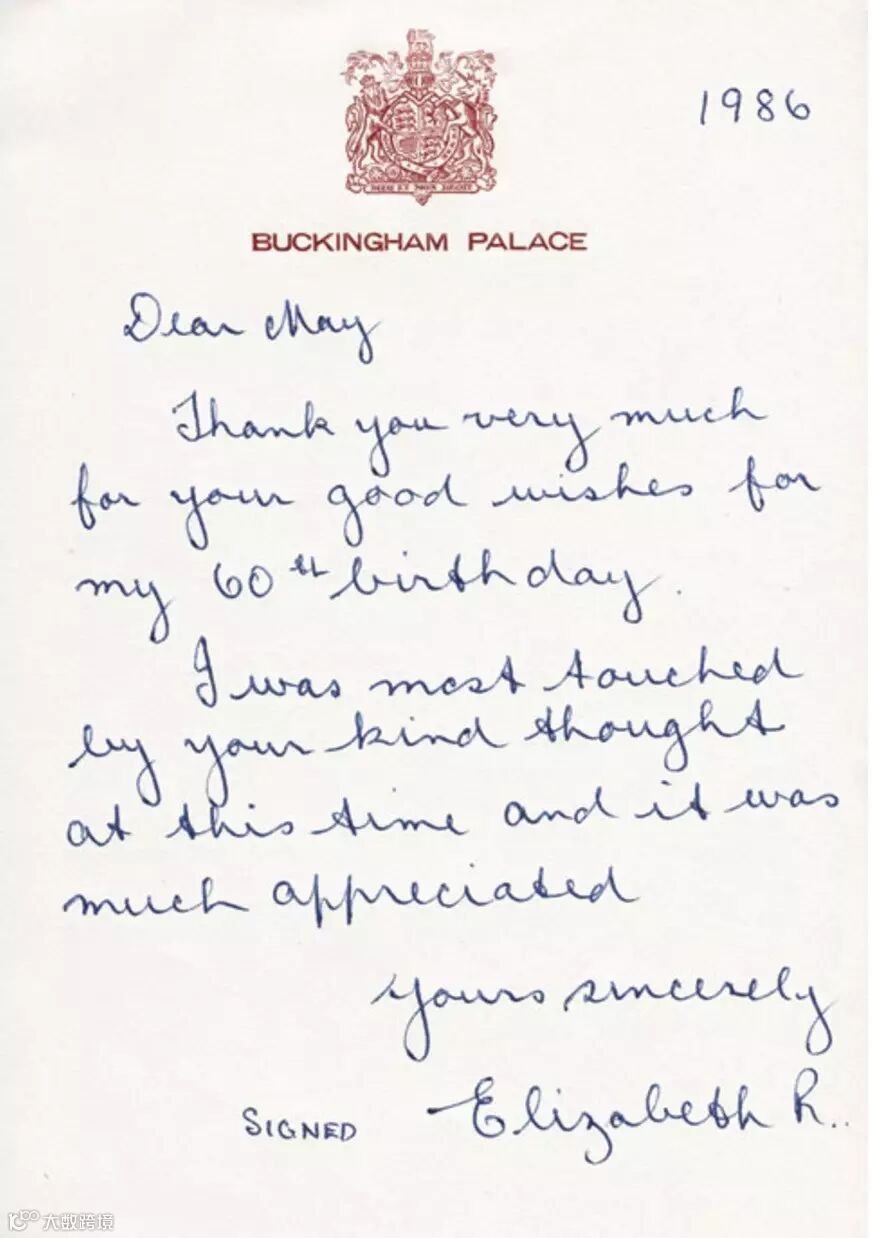 1986
DIEU ET MON DROIT
BUCKINGHAM PALACE
Dear May
Thank you very much
for your good wishes for
my 60th birthday.
I was most touched
by your kind thought
at this time and it was
much appreciated
Yours sincerely
SIGNED Elizabeth R..
大数跨境